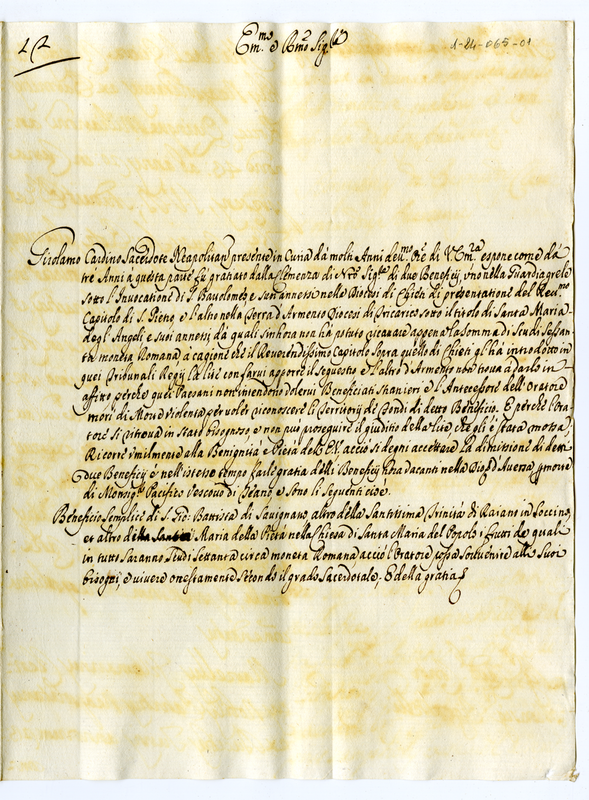 Em.mo e R.mo Sig.re
1-24-065-01
Girolamo Cardino Sacerdote Napolitan presente in Curia dà molti Anni deu.mo Ore di V. Em.za espone come dà
trè Anni à questa parte fù gratiato dalla Clemenza di N.ro Sig.re di due Beneficij, uno nella Guardiagrele
sotto l'Inuocatione di S. Bartolomeo e suoi annessi nella Diocesi di Chieti di presentatione del Reu.mo
Capitolo di S. Pietro e l'altro nella Terra d'Armento Diocesi di Tricarico sotto il titolo di Santa Maria
degl'Angeli e suoi annessi, dà quali sinhora non hà potuto ricauare appena la somma di Scudi Sessan
ta moneta Romana à cagione che il Reuerendissimo Capitolo sopra quello di Chieti gl'hà introdotto in
quei Tribunali Regij la lite con farui apporre il sequestro e l'altro d'Armento non troua à darlo in
affitto perche quei Paesani non intendono volerui Beneficiati stranieri e l'Antecessore dell'Oratore
morì di Morte violenta per voler riconoscere li Territorij e fondi di detto Beneficio. E perche l'Ora-
tore si ritroua in stato bisognoso, e non può proseguire il giuditio della lite che gli è stata mossa
Ricorre humilmente alla Benignità e Pietà dell'E.V. acciò si degni accettare la dimissione di detti
due Beneficij e nell'istesso tempo farle gratia delli Beneficij hora vacanti nella Dioc. d'Auersa p morte
di Monsig.r Pacifico Vescouo di e sono li seguenti cioè.
Beneficio Semplice di S. Gio: Battista di Sauignano altro della Santissima Trinità di Raiano in Soccino,
et altro della Maria della Pietà nella Chiesa di Santa Maria del Popolo i frutti de quali
in tutto saranno Scudi Settanta circa moneta Romana acciò l'Oratore possa souuenire alli suoi
bisogni, e viuere onestamente secondo il grado Sacerdotale. E della gratia